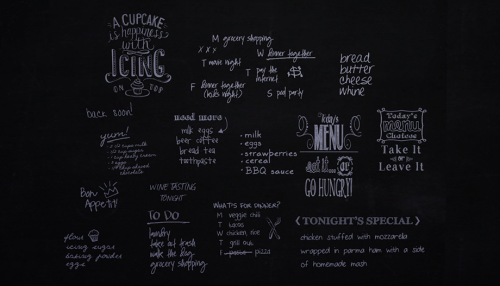 A CUPCAKE
is happiness
with
ICING
ON TOP
M grocery shopping
x x x
T movie night
W dinner together
T pay the
internet
F dinner together
(kids night)
S pool party
bread
butter
cheese
whine
back soon!
yum!
Bon
Appetit!
flour
icing sugar
baking powder
eggs
need more
milk eggs
beer coffee
bread tea
toothpaste
WINE TASTING
TONIGHT
TO DO
laundry
take out trash
walk the dog
grocery shopping
• milk
• eggs
• strawberries
• cereal
• BBQ sauce
WHAT'S FOR DINNER?
M veggie chili
T tacos
W chicken, rice
T grill out
F pasta pizza
Today's
MENU
eat it...
or
GO HUNGRY!
Today's
menu
Choices
Take It
or
Leave It
TONIGHT'S SPECIAL
chicken stuffed with mozzarella
wrapped in parma ham with a side
of homemade mash